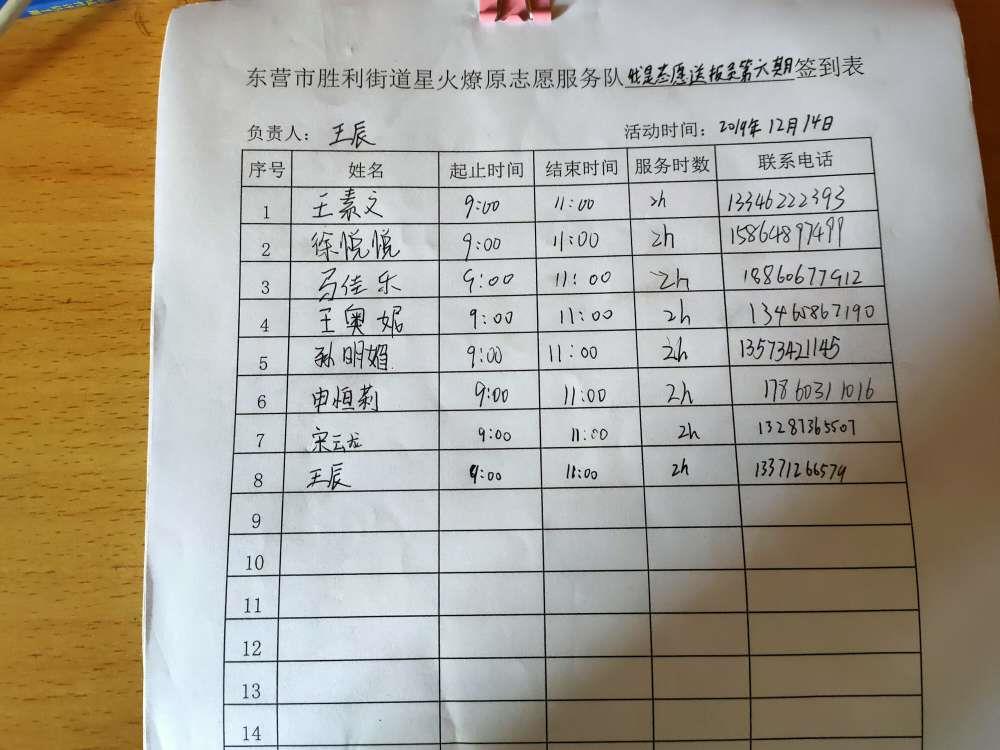 东营市胜利街道星火燎原志愿服务队我是志愿送报员第六期签到表
负责人： 王辰 活动时间：2019年12月14日
序号 姓名 起止时间 结束时间 服务时数 联系电话
1 王素文 9:00 11:00 2h 13346222393
2 徐悦悦 9:00 11:00 2h 15864897499
3 马佳乐 9:00 11:00 2h 18860677912
4 王奥妮 9:00 11:00 2h 13465867190
5 孙明娟 9:00 11:00 2h 13573421145
6 申恒莉 9:00 11:00 2h 17860311016
7 宋云龙 9:00 11:00 2h 13287365507
8 王辰 9:00 11:00 2h 13371266579
9
10
11
12
13
14